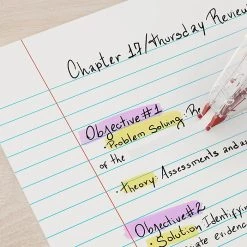 Chapter 17/Thursday Review
Objective #1
· Problem Solving: Re
of the
· Theory: Assessments and a
Objective #2
· Solution Identifying
evidenc